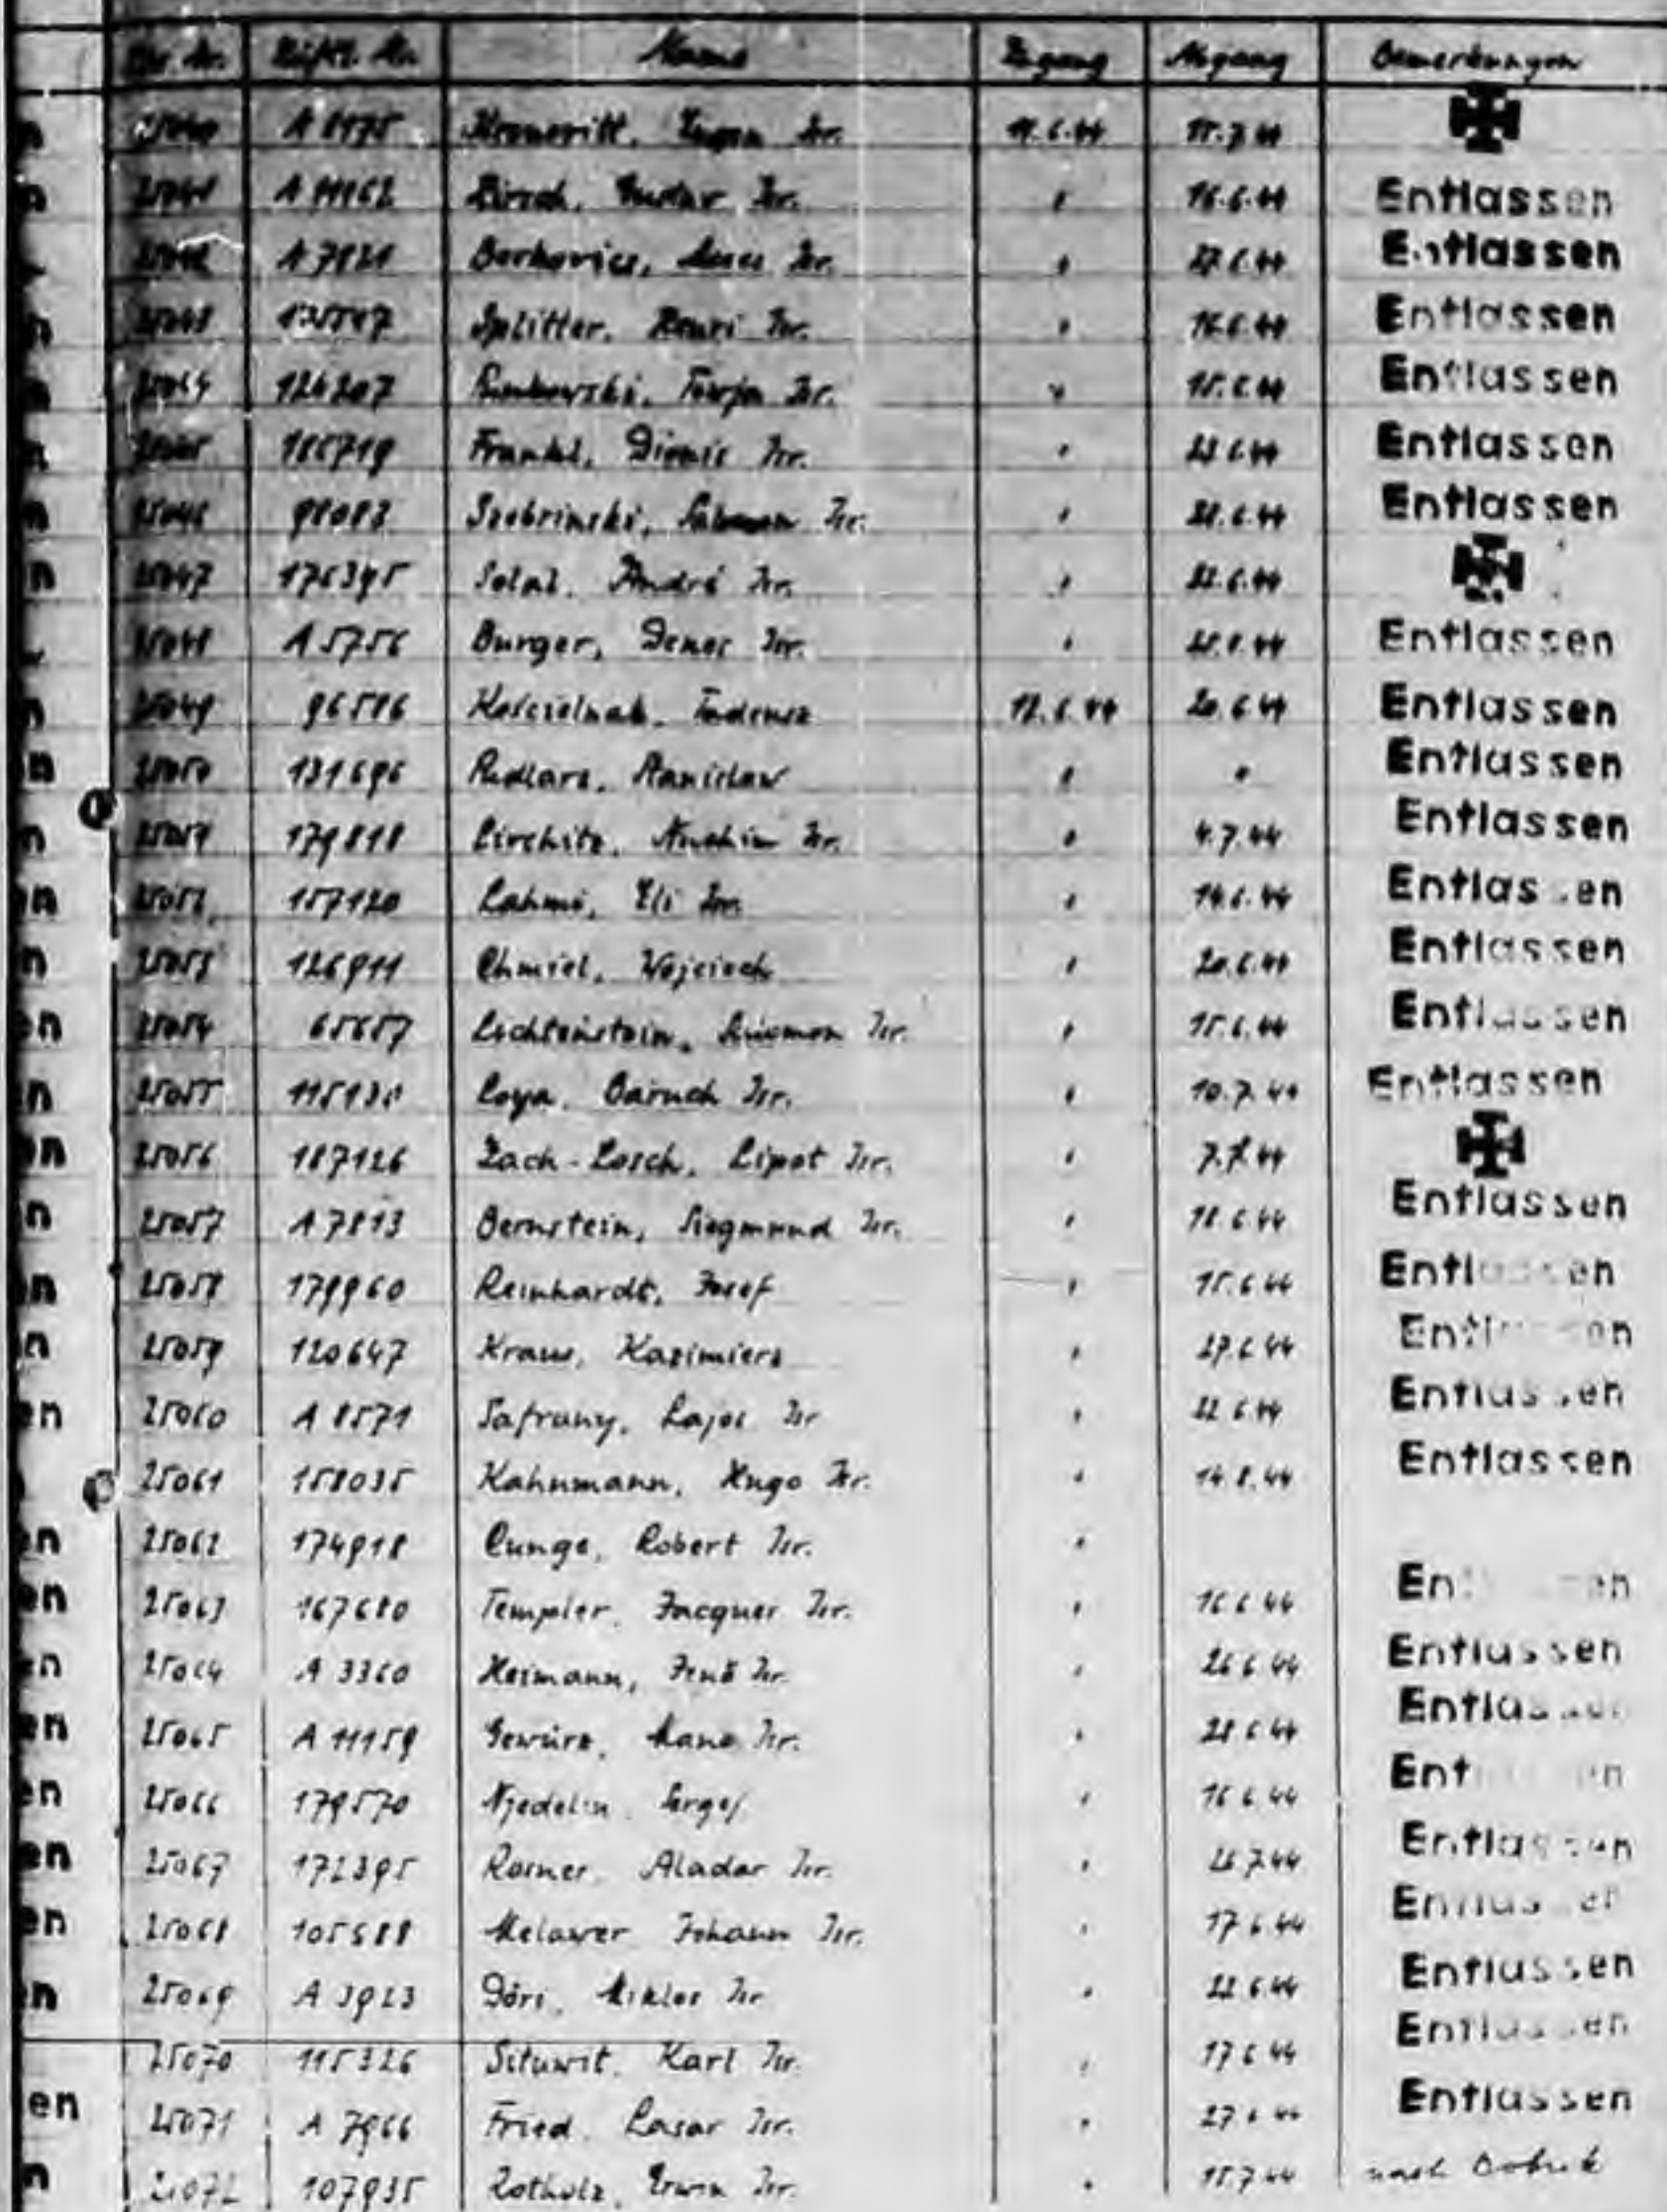 Lfd. Nr. Häftl. Nr. Name Zugang Abgang Bemerkungen
25040 A 8575 Isr. 11.6.44 15.7.44
25041 A 11162 Hirsch, Gustav Isr. " 16.6.44 Entlassen
25042 A 7821 Berkovics, Isr. " 27.6.44 Entlassen
25043 Splitter, Henri Isr. " 16.6.44 Entlassen
25044 124207 Isr. " 15.6.44 Entlassen
25045 Frankl, Dionis Isr. " Entlassen
25046 98083 Szebrinski, Salomon Isr. " 28.6.44 Entlassen
25047 176395 Solal, André Isr. " 22.6.44
25048 A 5756 Burger, Denes Isr. " Entlassen
25049 96586 Koscielniak, Tadeusz 12.6.44 20.6.44 Entlassen
25050 131696 Pudlarz, Stanislaw " " Entlassen
25051 179818 Lirchitz, Nuchim Isr. " 4.7.44 Entlassen
25052 157120 Lahmi, Eli Isr. " 14.6.44 Entlassen
25053 126911 Chmiel, Wojciech " 20.6.44 Entlassen
25054 65657 Lichtenstein, Isr. " 15.6.44 Entlassen
25055 Baruch Isr. " 10.7.44 Entlassen
25056 187126 Zach-Losch, Lipot Isr. " 7.7.44
25057 A 7813 Bernstein, Siegmund Isr. " 18.6.44 Entlassen
25058 179960 Reinhardt, Josef " 15.6.44 Entlassen
25059 120647 Kraus, Kazimierz " 27.6.44 Entlassen
25060 A 8571 Safrany, Lajos Isr " 22.6.44 Entlassen
25061 158035 Kahnmann, Hugo Isr. " 14.8.44 Entlassen
25062 174918 Cunge, Robert Isr. "
25063 167680 Templer, Jacques Isr. " 16.6.44 Entlassen
25064 A 3360 Heimann, Jenö Isr. " 26.6.44 Entlassen
25065 A 11159 Gewürz, Mano Isr. " 28.6.44 Entlassen
25066 179570 Njedelin, Sergej " 16.6.44 Entlassen
25067 172395 Rosner, Aladar Isr. " 26.7.44 Entlassen
25068 105588 Melawer Johann Isr. " 17.6.44 Entlassen
25069 A 3923 Döri, Miklos Isr " 22.6.44 Entlassen
25070 115326 Karl Isr. " 17.6.44 Entlassen
25071 A 7966 Fried, Lasar Isr. " 27.6.44 Entlassen
25072 107935 Rotholz, Erwin Isr. " 15.7.44 nach Bobrek